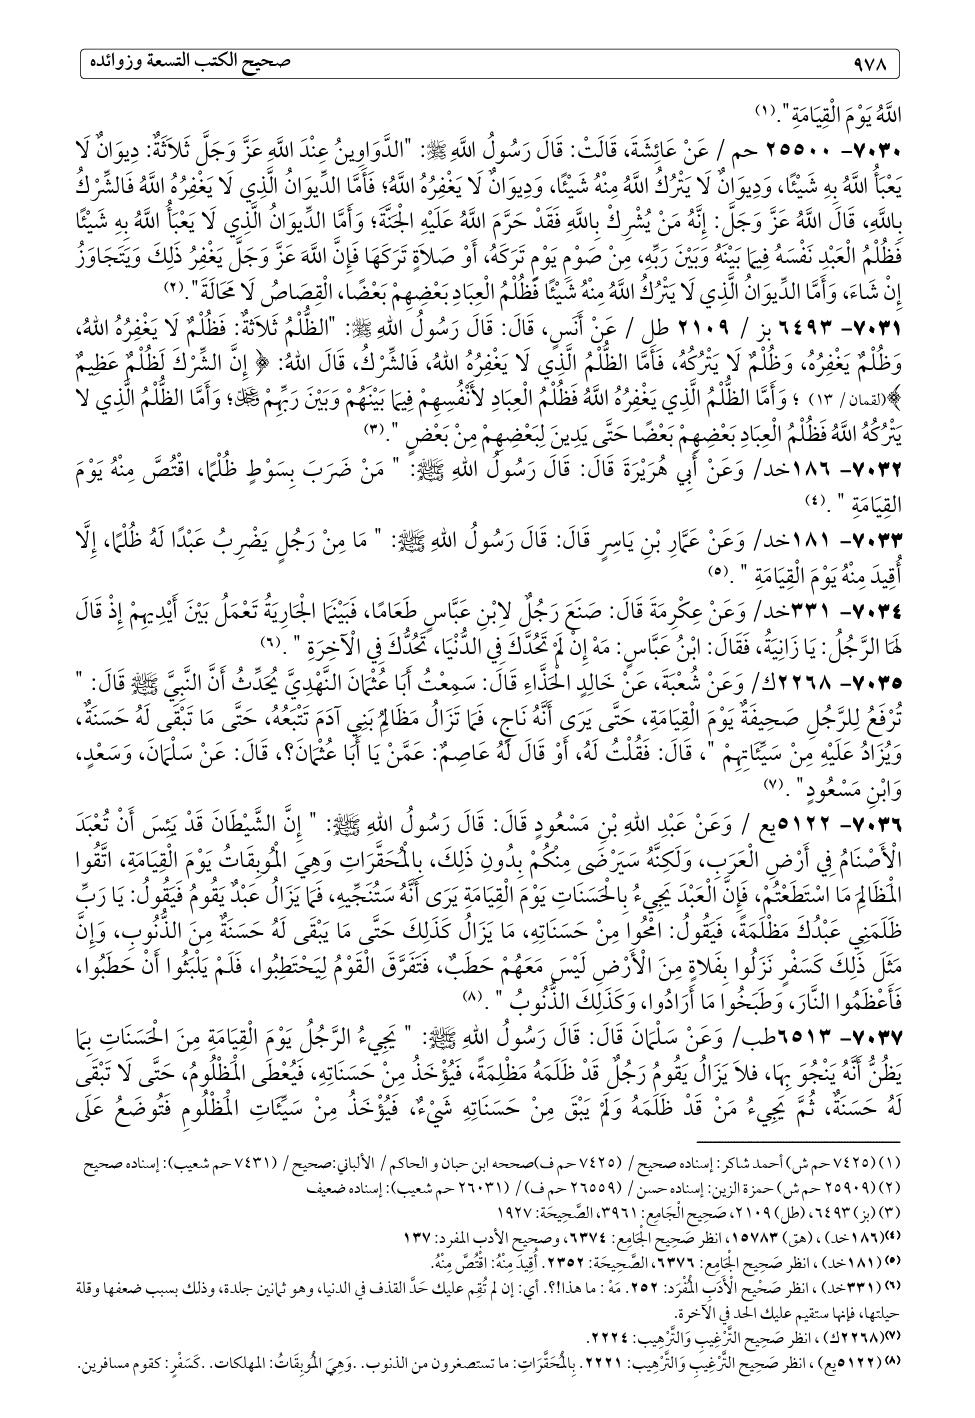 ٩٧٨ صحيح الكتب التسعة وزوائده
اللَّهُ يَوْمَ الْقِيَامَةِ".(١)
٧٠٣٠- ٢٥٥٠٠ حم / عَنْ عَائِشَةَ، قَالَتْ: قَالَ رَسُولُ اللَّهِ ﷺ: "الدَّوَاوِينُ عِنْدَ اللَّهِ عَزَّ وَجَلَّ ثَلَاثَةٌ: دِيوَانٌ لَا
يَعْبَأُ اللَّهُ بِهِ شَيْئًا، وَدِيوَانٌ لَا يَتْرُكُ اللَّهُ مِنْهُ شَيْئًا، وَدِيوَانٌ لَا يَغْفِرُهُ اللَّهُ؛ فَأَمَّا الدِّيوَانُ الَّذِي لَا يَغْفِرُهُ اللَّهُ فَالشِّرْكُ
بِاللَّهِ، قَالَ اللَّهُ عَزَّ وَجَلَّ: إِنَّهُ مَنْ يُشْرِكْ بِاللَّهِ فَقَدْ حَرَّمَ اللَّهُ عَلَيْهِ الْجَنَّةَ؛ وَأَمَّا الدِّيوَانُ الَّذِي لَا يَعْبَأُ اللَّهُ بِهِ شَيْئًا
فَظُلْمُ الْعَبْدِ نَفْسَهُ فِيمَا بَيْنَهُ وَبَيْنَ رَبِّهِ، مِنْ صَوْمِ يَوْمٍ تَرَكَهُ، أَوْ صَلَاةٍ تَرَكَهَا فَإِنَّ اللَّهَ عَزَّ وَجَلَّ يَغْفِرُ ذَلِكَ وَيَتَجَاوَزُ
إِنْ شَاءَ، وَأَمَّا الدِّيوَانُ الَّذِي لَا يَتْرُكُ اللَّهُ مِنْهُ شَيْئًا فَظُلْمُ الْعِبَادِ بَعْضِهِمْ بَعْضًا، الْقِصَاصُ لَا مَحَالَةَ".(٢)
٧٠٣١- ٦٤٩٣ بز / ٢١٠٩ طل / عَنْ أَنَسٍ، قَالَ: قَالَ رَسُولُ اللهِ ﷺ: "الظُّلْمُ ثَلَاثَةٌ: فَظُلْمٌ لَا يَغْفِرُهُ اللهُ،
وَظُلْمٌ يَغْفِرُهُ، وَظُلْمٌ لَا يَتْرُكُهُ، فَأَمَّا الظُّلْمُ الَّذِي لَا يَغْفِرُهُ اللهُ، فَالشِّرْكُ، قَالَ اللهُ: ﴿ إِنَّ الشِّرْكَ لَظُلْمٌ عَظِيمٌ
﴾(لقمان/ ١٣) ؛ وَأَمَّا الظُّلْمُ الَّذِي يَغْفِرُهُ اللَّهُ فَظُلْمُ الْعِبَادِ لأَنْفُسِهِمْ فِيمَا بَيْنَهُمْ وَبَيْنَ رَبِّهِمْ ﷻ؛ وَأَمَّا الظُّلْمُ الَّذِي لا
يَتْرُكُهُ اللَّهُ فَظُلْمُ الْعِبَادِ بَعْضِهِمْ بَعْضًا حَتَّى يَدِينَ لِبَعْضِهِمْ مِنْ بَعْضٍ ".(٣)
٧٠٣٢- ١٨٦خد/ وَعَنْ أَبِي هُرَيْرَةَ قَالَ: قَالَ رَسُولُ اللهِ ﷺ: " مَنْ ضَرَبَ بِسَوْطٍ ظُلْمًا، اقْتُصَّ مِنْهُ يَوْمَ
القِيَامَةِ ".(٤)
٧٠٣٣- ١٨١خد/ وَعَنْ عَمَّارِ بْنِ يَاسِرٍ قَالَ: قَالَ رَسُولُ اللهِ ﷺ: " مَا مِنْ رَجُلٍ يَضْرِبُ عَبْدًا لَهُ ظُلْمًا، إِلَّا
أُقِيدَ مِنْهُ يَوْمَ الْقِيَامَةِ ".(٥)
٧٠٣٤- ٣٣١خد/ وَعَنْ عِكْرِمَةَ قَالَ: صَنَعَ رَجُلٌ لِابْنِ عَبَّاسٍ طَعَامًا، فَبَيْنَمَا الْجَارِيَةُ تَعْمَلُ بَيْنَ أَيْدِيهِمْ إِذْ قَالَ
لَهَا الرَّجُلُ: يَا زَانِيَةُ، فَقَالَ: ابْنُ عَبَّاسٍ: مَهْ إِنْ لَمْ تَحُدَّكَ فِي الدُّنْيَا، تَحُدُّكَ فِي الْآخِرَةِ ".(٦)
٧٠٣٥- ٢٢٦٨ك/ وَعَنْ شُعْبَةَ، عَنْ خَالِدٍ الْحَذَّاءِ قَالَ: سَمِعْتُ أَبَا عُثْمَانَ النَّهْدِيَّ يُحَدِّثُ أَنَّ النَّبِيَّ ﷺ قَالَ: "
تُرْفَعُ لِلرَّجُلِ صَحِيفَةٌ يَوْمَ الْقِيَامَةِ، حَتَّى يَرَى أَنَّهُ نَاجٍ، فَمَا تَزَالُ مَظَالِمُ بَنِي آدَمَ تَتْبَعُهُ، حَتَّى مَا تَبْقَى لَهُ حَسَنَةٌ،
وَيُزَادُ عَلَيْهِ مِنْ سَيِّئَاتِهِمْ "، قَالَ: فَقُلْتُ لَهُ، أَوْ قَالَ لَهُ عَاصِمٌ: عَمَّنْ يَا أَبَا عُثْمَانَ؟، قَالَ: عَنْ سَلْمَانَ، وَسَعْدٍ،
وَابْنِ مَسْعُودٍ".(٧)
٧٠٣٦- ٥١٢٢يع / وَعَنْ عَبْدِ اللهِ بْنِ مَسْعُودٍ قَالَ: قَالَ رَسُولُ اللهِ ﷺ: " إِنَّ الشَّيْطَانَ قَدْ يَئِسَ أَنْ تُعْبَدَ
الْأَصْنَامُ فِي أَرْضِ الْعَرَبِ، وَلَكِنَّهُ سَيَرْضَى مِنْكُمْ بِدُونِ ذَلِكَ، بِالْمُحَقَّرَاتِ وَهِيَ الْمُوبِقَاتُ يَوْمَ الْقِيَامَةِ، اتَّقُوا
الْمَظَالِمَ مَا اسْتَطَعْتُمْ، فَإِنَّ الْعَبْدَ يَجِيءُ بِالْحَسَنَاتِ يَوْمَ الْقِيَامَةِ يَرَى أَنَّهُ سَتُنَجِّيهِ، فَمَا يَزَالُ عَبْدٌ يَقُومُ فَيَقُولُ: يَا رَبِّ
ظَلَمَنِي عَبْدُكَ مَظْلَمَةً، فَيَقُولُ: امْحُوا مِنْ حَسَنَاتِهِ، مَا يَزَالُ كَذَلِكَ حَتَّى مَا يَبْقَى لَهُ حَسَنَةٌ مِنَ الذُّنُوبِ، وَإِنَّ
مَثَلَ ذَلِكَ كَسَفْرٍ نَزَلُوا بِفَلاةٍ مِنَ الْأَرْضِ لَيْسَ مَعَهُمْ حَطَبٌ، فَتَفَرَّقَ الْقَوْمُ لِيَحْتَطِبُوا، فَلَمْ يَلْبَثُوا أَنْ حَطَبُوا،
فَأَعْظَمُوا النَّارَ، وَطَبَخُوا مَا أَرَادُوا، وَكَذَلِكَ الذُّنُوبُ ".(٨)
٧٠٣٧- ٦٥١٣طب/ وَعَنْ سَلْمَانَ قَالَ: قَالَ رَسُولُ اللهِ ﷺ: " يَجِيءُ الرَّجُلُ يَوْمَ الْقِيَامَةِ مِنَ الْحَسَنَاتِ بِمَا
يَظُنُّ أَنَّهُ يَنْجُو بِهَا، فَلاَ يَزَالُ يَقُومُ رَجُلٌ قَدْ ظَلَمَهُ مَظْلِمَةً، فَيُؤْخَذُ مِنْ حَسَنَاتِهِ، فَيُعْطَى الْمَظْلُومُ، حَتَّى لَا تَبْقَى
لَهُ حَسَنَةٌ، ثُمَّ يَجِيءُ مَنْ قَدْ ظَلَمَهُ وَلَمْ يَبْقَ مِنْ حَسَنَاتِهِ شَيْءٌ، فَيُؤْخَذُ مِنْ سَيِّئَاتِ الْمَظْلُومِ فَتُوضَعُ عَلَى
(١)(٧٤٢٥ حم ش) أحمد شاكر: إسناده صحيح / (٧٤٢٥ حم ف)صححه ابن حبان و الحاكم / الألباني:صحيح / (٧٤٣١ حم شعيب): إسناده صحيح
(٢)(٢٥٩٠٩ حم ش) حمزة الزين: إسناده حسن / (٢٦٥٥٩ حم ف)/ (٢٦٠٣١ حم شعيب): إسناده ضعيف
(٣)(بز) ٦٤٩٣، (طل) ٢١٠٩، صَحِيح الْجَامِع: ٣٩٦١، الصَّحِيحَة: ١٩٢٧
(٤)(١٨٦خد) ، (هق) ١٥٧٨٣، انظر صَحِيح الْجَامِع: ٦٣٧٤، وصحيح الأدب المفرد: ١٣٧
(٥)(١٨١خد) ، انظر صَحِيح الْجَامِع: ٦٣٧٦، الصَّحِيحَة: ٢٣٥٢. أُقِيدَ مِنْهُ: اقْتُصَّ مِنْهُ.
(٦)(٣٣١خد) ، انظر صَحْيح الْأَدَبِ الْمُفْرَد: ٢٥٢. مَهْ : ما هذا!؟. أي: إن لم تُقِم عليك حَدَّ القذف في الدنيا، وهو ثمانين جلدة، وذلك بسبب ضعفها وقلة
حيلتها، فإنها ستقيم عليك الحد في الآخرة.
(٧)(٢٢٦٨ك) ، انظر صَحِيح التَّرْغِيبِ وَالتَّرْهِيب: ٢٢٢٤.
(٨)(٥١٢٢يع) ، انظر صَحِيح التَّرْغِيبِ وَالتَّرْهِيب: ٢٢٢١. بِالْمُحَقَّرَاتِ: ما تستصغرون من الذنوب. .وَهِيَ الْمُوبِقَاتُ: المهلكات. .كَسَفْرٍ: كقوم مسافرين.